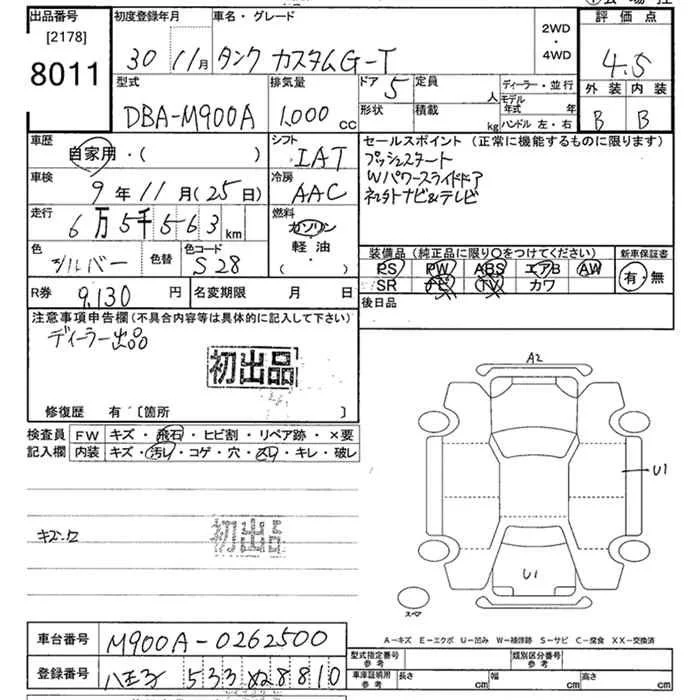 出品番号
[2178]
8011
初度登録年月
30 11月
車名・グレード
タンク カスタムG-T
2WD
・
4WD
評価点
4.5
外装 内装
B B
型式
DBA-M900A
排気量
1,000 cc
ドア 5
定員 人
形状
積載 kg
ディーラー・並行
モデル年式 年
ハンドル 左・右
車歴
自家用・( )
シフト
IAT
車検
9年 11月(25日)
冷房
AAC
走行
6万5千563km
燃料
ガソリン
軽油
( )
色
シルバー
色替
色コード
S28
R券
9,130円
名変期限 月 日
セールスポイント(正常に機能するものに限ります)
プッシュスタート
Wパワースライドドア
ネスタトナビ&テレビ
装備品(純正品に限り〇をつけてください)
PS PW ABS エアB AW
SR ナビ TV カワ
新車保証書
有・無
後日品
注意事項申告欄(不具合内容等は具体的に記入して下さい)
ディーラー出品
初出品
修復歴 有〔箇所 〕
検査員
記入欄
FW キズ・飛石・ヒビ割・リペア跡・×要
内装 キズ・汚れ・コゲ・穴・スレ・キレ・破レ
初出品
A2
U1
U1
スペア
A-キズ E-エクボ U-凹み W-補修跡 S-サビ C-腐食 XX-交換済
車台番号
M900A-0262500
登録番号
八王子 533 ぬ 8810
型式指定番号
参考
類別区分番号
参考
車庫証明用
参考
長さ cm
幅 cm
高さ cm